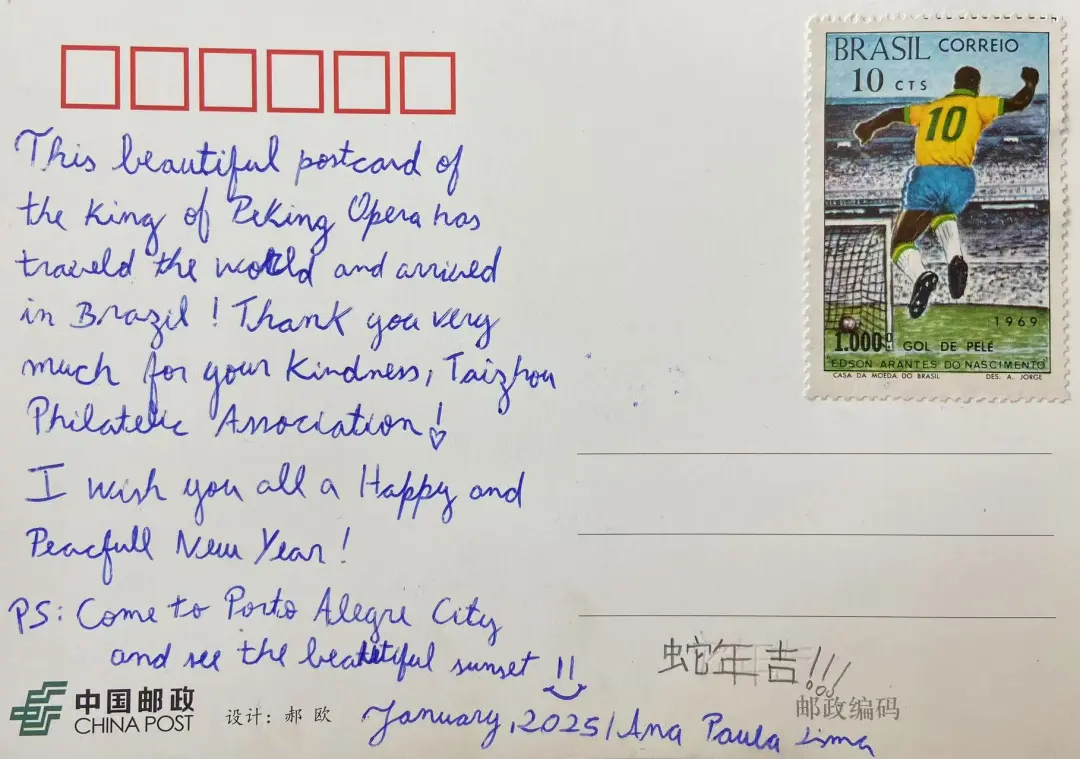 This beautiful postcard of
the King of PeKing Opera has
traveld the world and arrived
in Brazil! Thank you very
much for your Kindness, Taizhou
Philatelic Association!
I wish you all a Happy and
Peacfull New Year!
PS: Come to Porto Alegre City
and see the beautiful sunset !!
January, 2025/Ana Paula Lima
BRASIL CORREIO
10 CTS
10
1969
1.000º GOL DE PELÉ
"EDSON ARANTES DO NASCIMENTO"
CASA DA MOEDA DO BRASIL DES. A. JORGE
蛇年吉!!!
邮政编码
中国邮政
CHINA POST
设计: 郝 欧